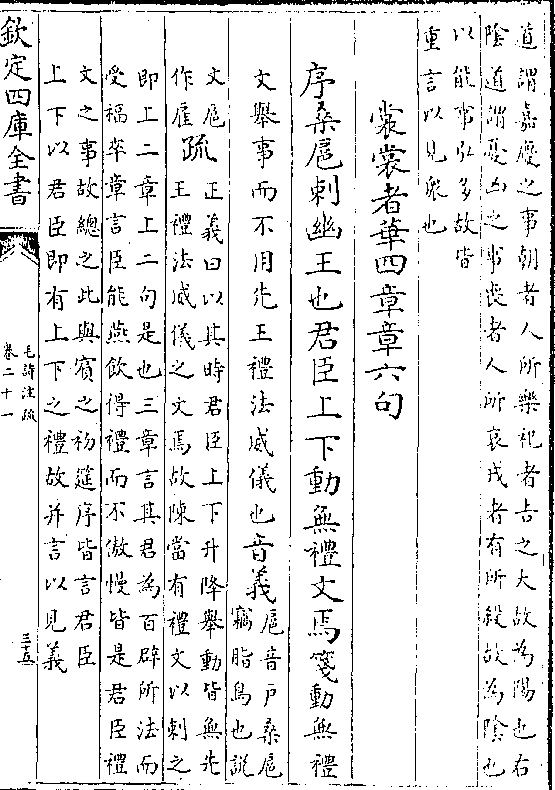 道謂嘉慶之事朝者人所樂祀者吉之大故為陽也右
陰道謂憂凶之事喪者人所哀戎者有所殺故為陰也
以能事弘多故皆
重言以見衆也
裳裳者華四章章六句
序桑扈刺幽王也君臣上下動無禮文焉箋動無禮
文舉事而不用先王禮法威儀也音義扈音戶桑扈
竊脂鳥也說
文扈
作雇疏正義曰以其時君臣上下升降舉動皆無先
王禮法威儀之文焉故陳當有禮文以刺之
即上二章上二句是也三章言其君為百辟所法而
受福卒章言臣能燕飲得禮而不傲慢皆是君臣禮
文之事故總之此與賓之初筵序皆言君臣
上下以君臣即有上下之禮故并言以見義
欽定四庫全書
毛詩注疏
卷二十一
三五